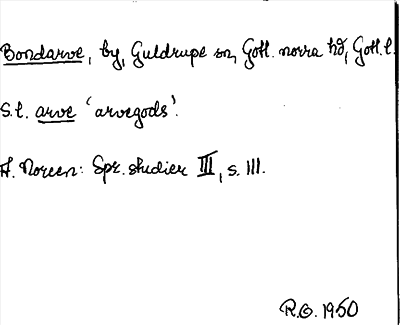 Bondarve, by, Guldrupe sn, Gotl. norra hd, Gotl. l.
S.l. arve 'arvegods'.
A. Noreen: Spr. studier III, s. 111.
R.O. 1950